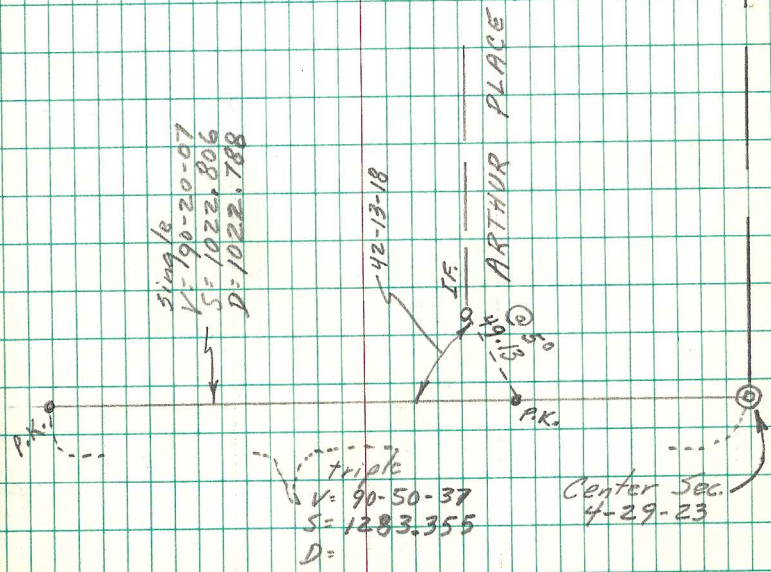 single
V= 90-20-07
S= 1022.806
D= 1022.788
42-13-18
I.F.
ARTHUR PLACE
49.13 @ 50
P.K.
P.K.
triple
V= 90-50-37
S= 1283.355
D=
Center Sec.
4-29-23